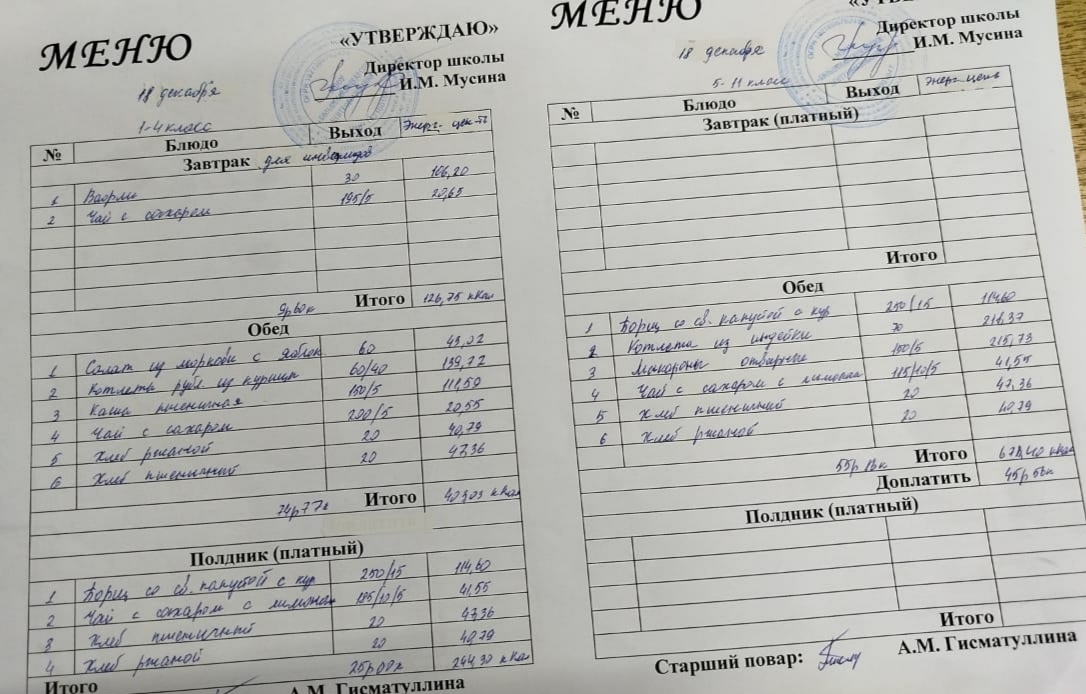 МЕНЮ
«УТВЕРЖДАЮ»
Директор школы
И.М. Мусина
18 декабря
1-4 класс
№ Блюдо Выход Энерг. цен-ть
Завтрак для инвалидов
1 Вафли 30 106,20
2 Чай с сахаром 195/5 20,65
9р60к Итого 126,75 кКал
Обед
1 Салат из моркови с яблок 60 43,02
2 Котлета руб. из курицы 60/40 139,72
3 Каша пшеничная 150/5 111,59
4 Чай с сахаром 200/5 20,55
5 Хлеб ржаной 20 40,79
6 Хлеб пшеничный 20 47,36
74р77к Итого 403,03 кКал
Полдник (платный)
1 Борщ со св. капустой с кур 250/15 114,60
2 Чай с сахаром с лимоном 185/10/5 41,55
3 Хлеб пшеничный 20 47,36
4 Хлеб ржаной 20 40,79
Итого 25р00к 244,30 кКал
А.М. Гисматуллина
МЕНЮ
Директор школы
И.М. Мусина
18 декабря
5-11 класс
№ Блюдо Выход Энерг. цень
Завтрак (платный)
Итого
Обед
1 Борщ со св. капустой с кур 250/15 114,60
2 Котлета из индейки 70 218,37
3 Макароны отварные 150/5 215,73
4 Чай с сахаром с лимоном 185/10/5 41,55
5 Хлеб пшеничный 20 47,36
6 Хлеб ржаной 20 40,79
Итого 678,40 кКал
Доплатить 45р
Полдник (платный)
Итого
Старший повар: А.М. Гисматуллина